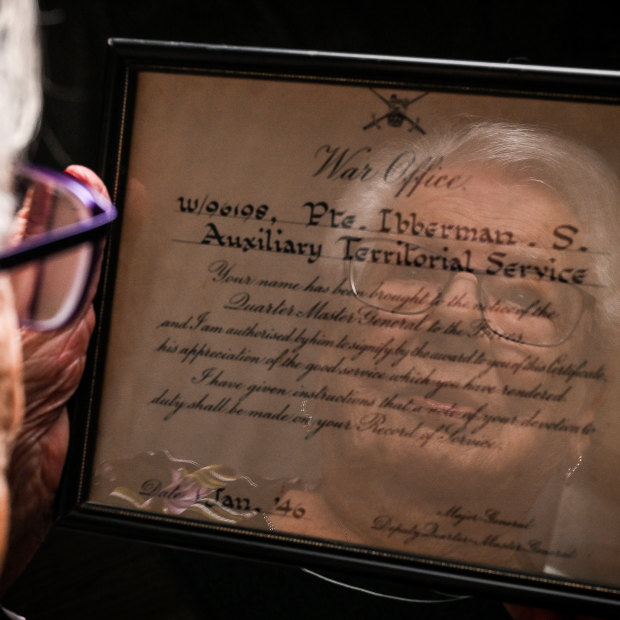 War Office.
W/96198, Pte. Ibberman. S.
Auxiliary Territorial Service
Your name has been brought to the notice of the
Quarter Master General to the Forces
and I am authorised by him to signify by the award to you of this Certificate,
his appreciation of the good service which you have rendered.
I have given instructions that a note of your devotion to
duty shall be made on your Record of Service.
Date Jan. '46
Major-General
Deputy Quarter-Master-General